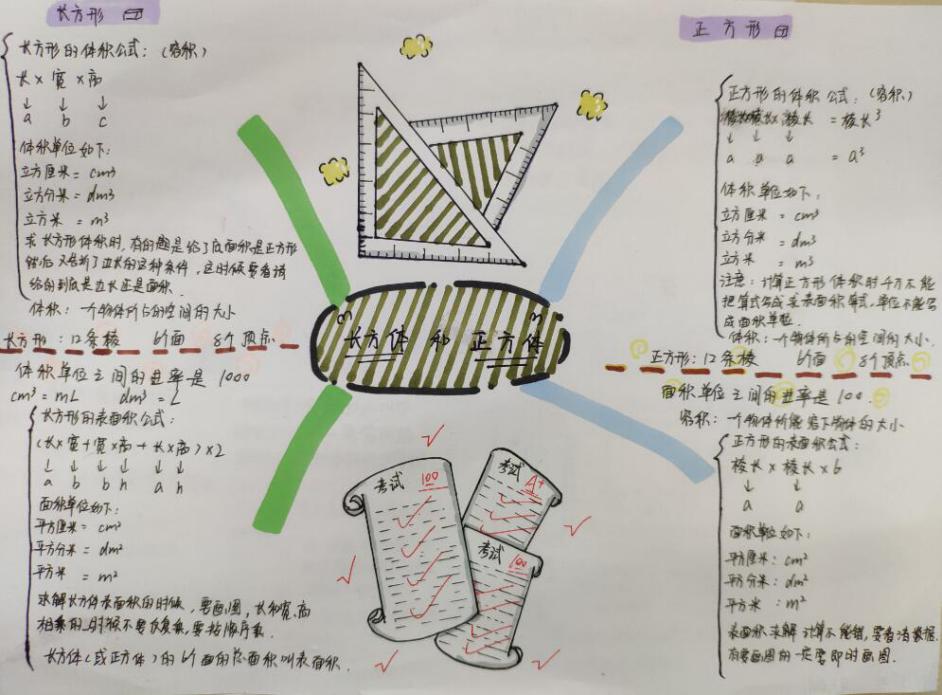 长方形
长方形的体积公式：（容积）
长×宽×高
↓ ↓ ↓
a b c
体积单位如下：
立方厘米 = cm³
立方分米 = dm³
立方米 = m³
求长方形体积时，有的题是给了底面积是正方形
然后又告诉了边长的这种条件，这时候要看该
给的到底是边长还是面积.
体积：一个物体所占的空间的大小
长方形：12条棱 6个面 8个顶点
体积单位之间的进率是 1000
cm³ = mL dm³ = L
长方形的表面积公式：
(长×宽+宽×高+长×高)×2
↓ ↓ ↓ ↓ ↓ ↓
a b b h a h
面积单位如下：
平方厘米 = cm²
平方分米 = dm²
平方米 = m²
求解长方体表面积的时候，要画图，长和宽、高
相乘的时候不要 要按顺序乘.
长方体(或正方体)的6个面的总面积叫表面积.
长方体 和 正方体
考试 100
考试 A+
考试 100
正方形
正方形的体积公式：（容积）
棱长×棱长 = 棱长³
↓ ↓ ↓
a a a = a³
体积单位如下：
立方厘米 = cm³
立方分米 = dm³
立方米 = m³
注意：计算正方形体积时千万不能
把算式写成求表面积算式，单位不能写
成面积单位.
体积：一个物体所占的空间的大小.
正方形：12条棱 6个面 8个顶点
面积单位之间的进率是100.
容积：一个物体所能容下物体的大小
正方形的表面积公式：
棱长×棱长×6
↓ ↓
a a
面积单位如下：
平方厘米：cm²
平方分米：dm²
平方米：m²
表面积求解计算不能错，要看清数据.
有要画图的一定要即时画图.